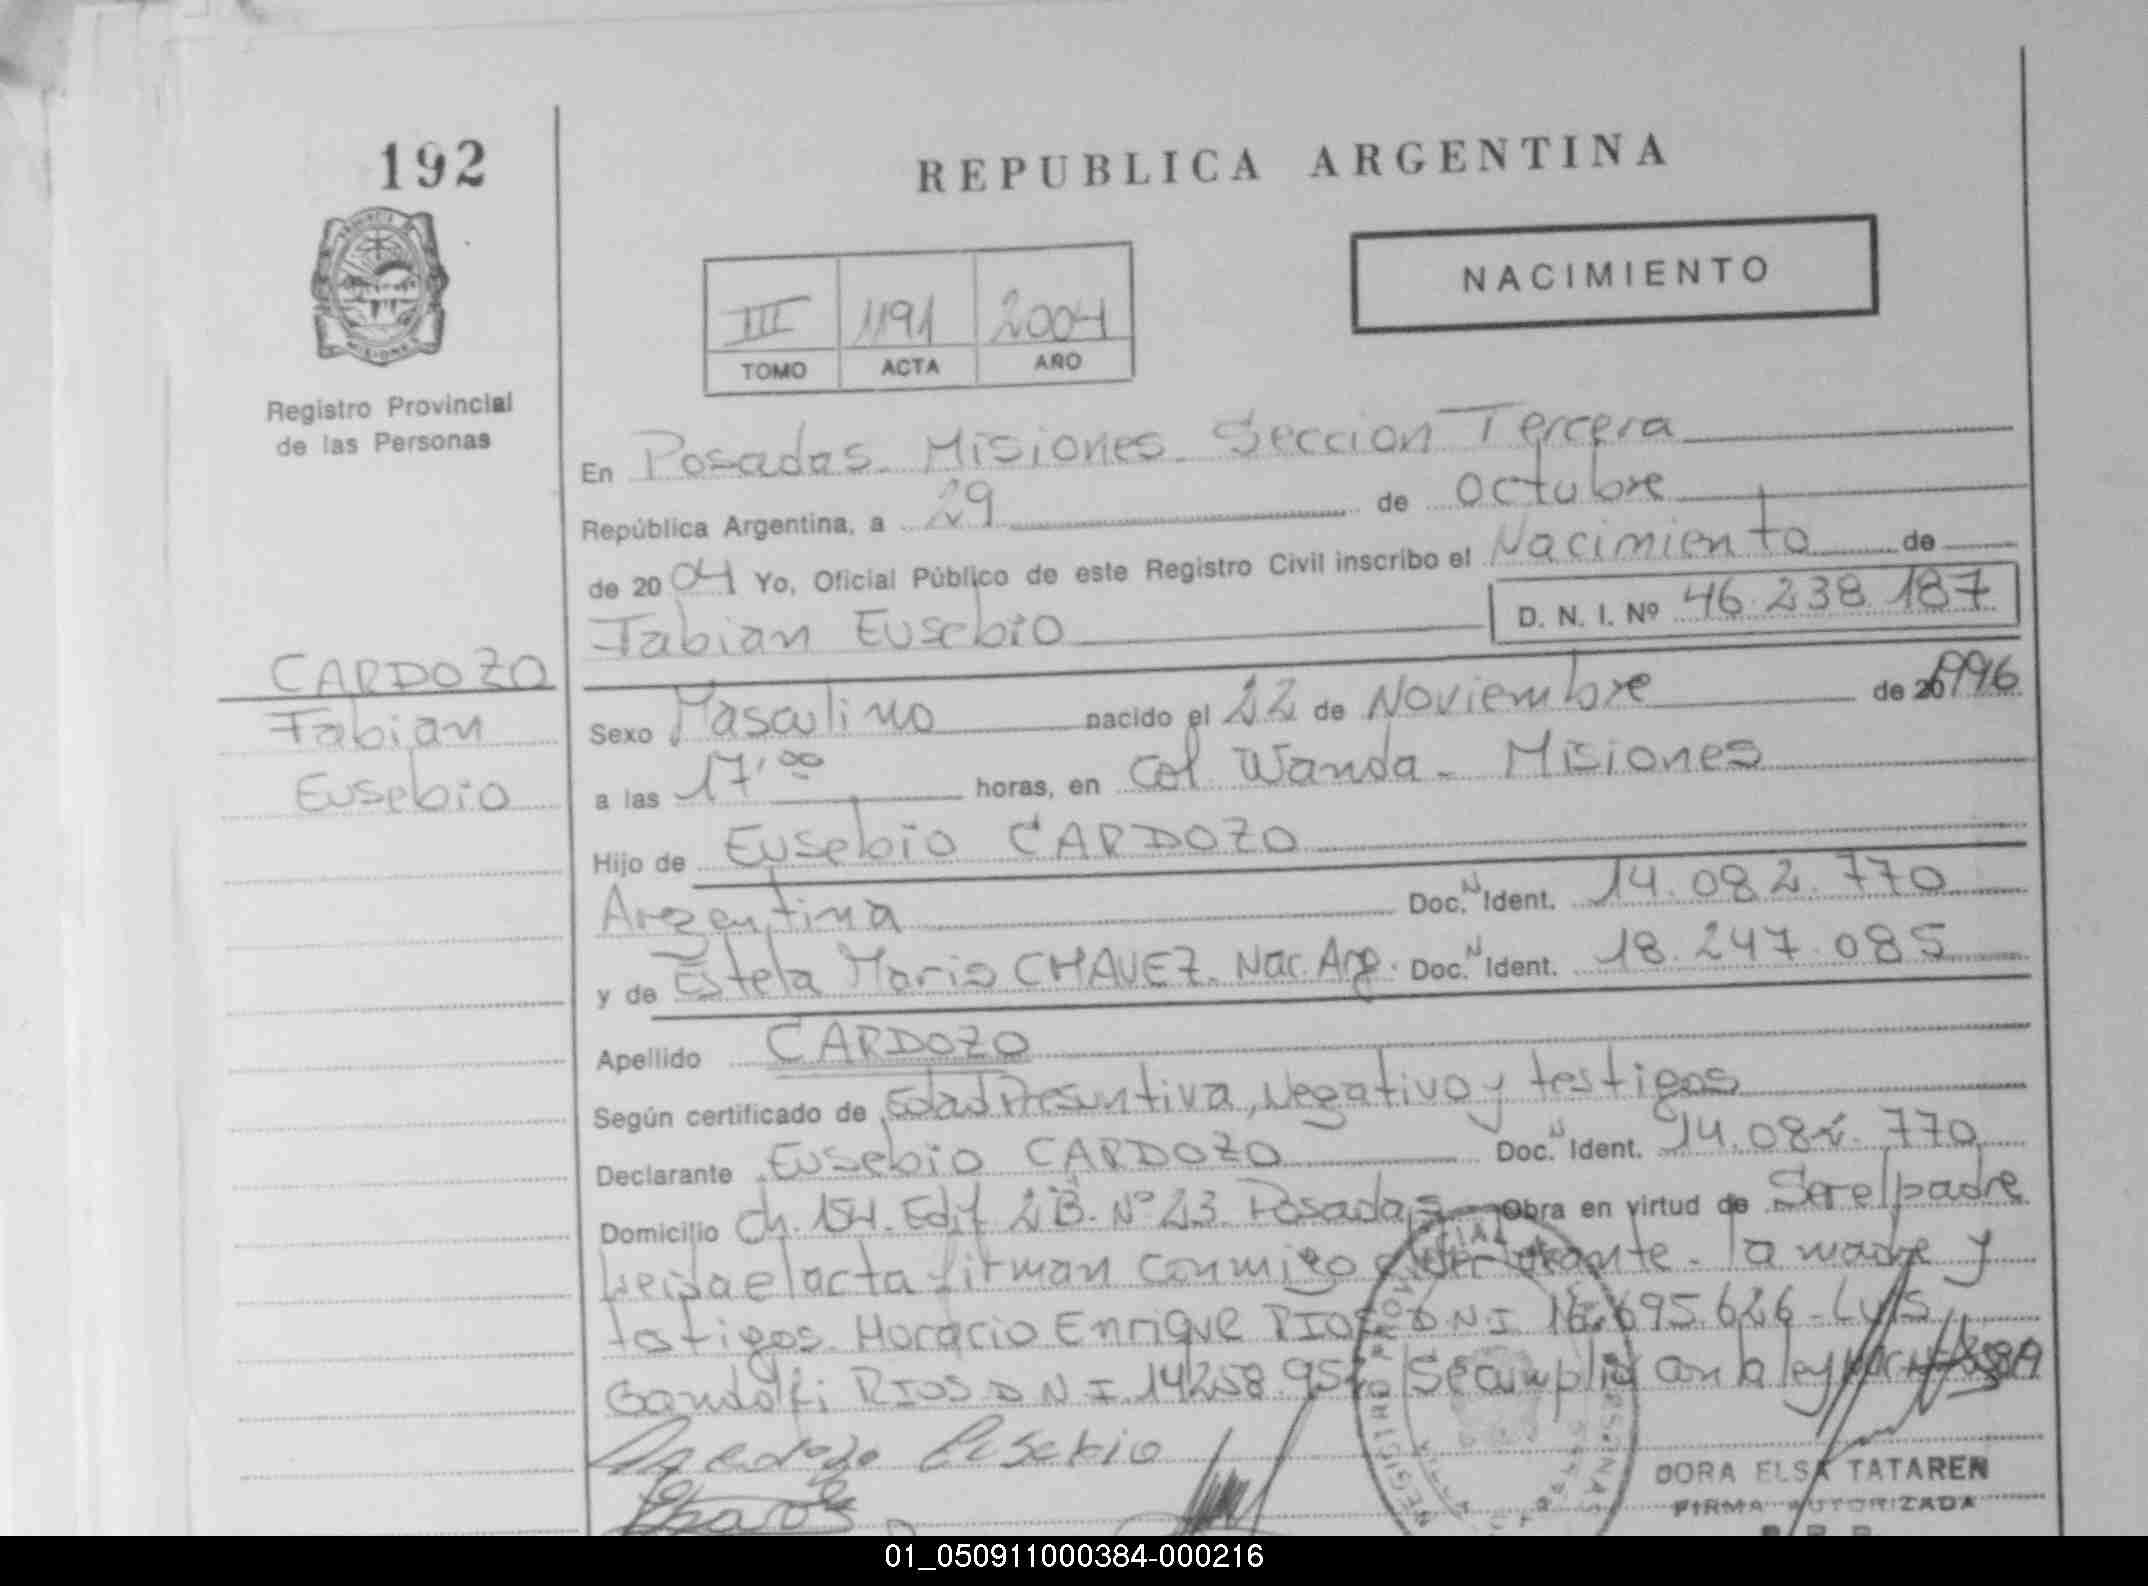 192
REPUBLICA ARGENTINA
NACIMIENTO
III 1191 2004
TOMO ACTA AÑO
Registro Provincial
de las Personas
En Posadas. Misiones. Seccion Tercera
República Argentina, a 29 de Octubre
de 2004 Yo, Oficial Público de este Registro Civil inscribo el Nacimiento de
Fabian Eusebio D. N. I. Nº 46.238.187
CARDOZO
Fabian
Eusebio
Sexo Masculino nacido el 22 de Noviembre de 1996
a las 17,00 horas, en Col. Wanda - Misiones
Hijo de Eusebio CARDOZO
Argentina Doc. N Ident. 14.082.770
y de Estela Maris CHAVEZ. Nac. Arg. Doc. N Ident. 18.247.085
Apellido CARDOZO
Según certificado de Edad Presuntiva, Negativo y testigos
Declarante Eusebio CARDOZO Doc. N Ident. 14.082.770
Domicilio Ch. 154. Edif 2B. Nº 23 Posadas Obra en virtud de Ser el padre
Leida el acta firman conmigo declarante. la madre y
testigos. Horacio Enrique RIOS D N I 16.695.626 - Luis
Gandolfi RIOS D N I. 14258.957 Se cumplio con la ley
Cardozo Eusebio
DORA ELSA TATAREN
FIRMA AUTORIZADA
01_050911000384-000216